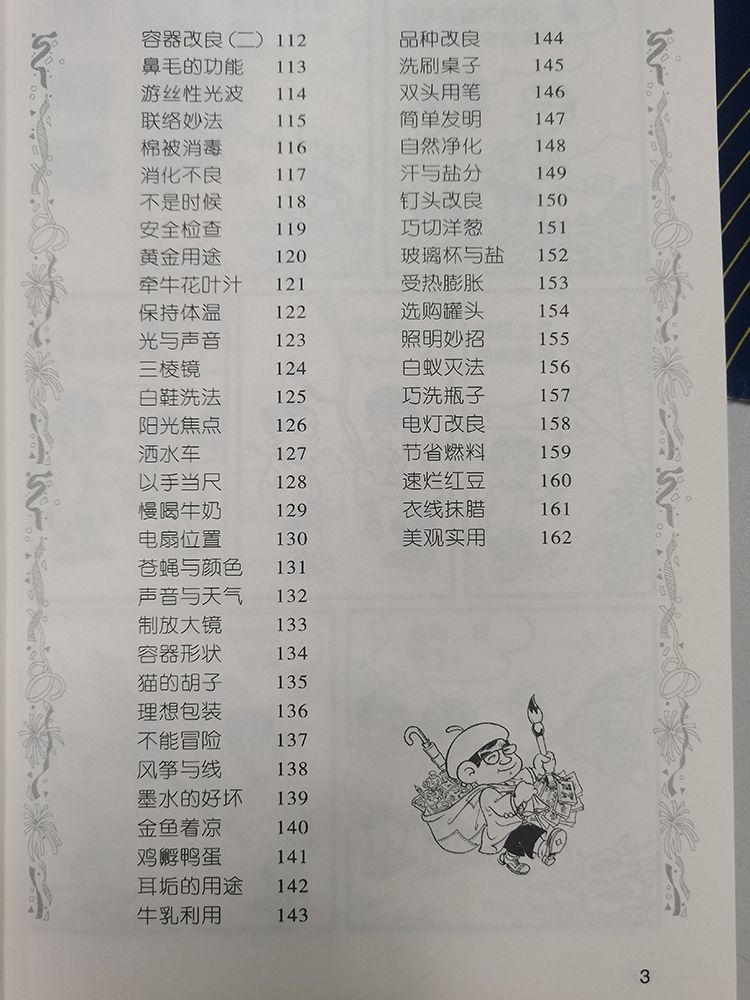 容器改良(二) 112
鼻毛的功能 113
游丝性光波 114
联络妙法 115
棉被消毒 116
消化不良 117
不是时候 118
安全检查 119
黄金用途 120
牵牛花叶汁 121
保持体温 122
光与声音 123
三棱镜 124
白鞋洗法 125
阳光焦点 126
洒水车 127
以手当尺 128
慢喝牛奶 129
电扇位置 130
苍蝇与颜色 131
声音与天气 132
制放大镜 133
容器形状 134
猫的胡子 135
理想包装 136
不能冒险 137
风筝与线 138
墨水的好坏 139
金鱼着凉 140
鸡孵鸭蛋 141
耳垢的用途 142
牛乳利用 143
品种改良 144
洗刷桌子 145
双头用笔 146
简单发明 147
自然净化 148
汗与盐分 149
钉头改良 150
巧切洋葱 151
玻璃杯与盐 152
受热膨胀 153
选购罐头 154
照明妙招 155
白蚁灭法 156
巧洗瓶子 157
电灯改良 158
节省燃料 159
速烂红豆 160
衣线抹腊 161
美观实用 162
3